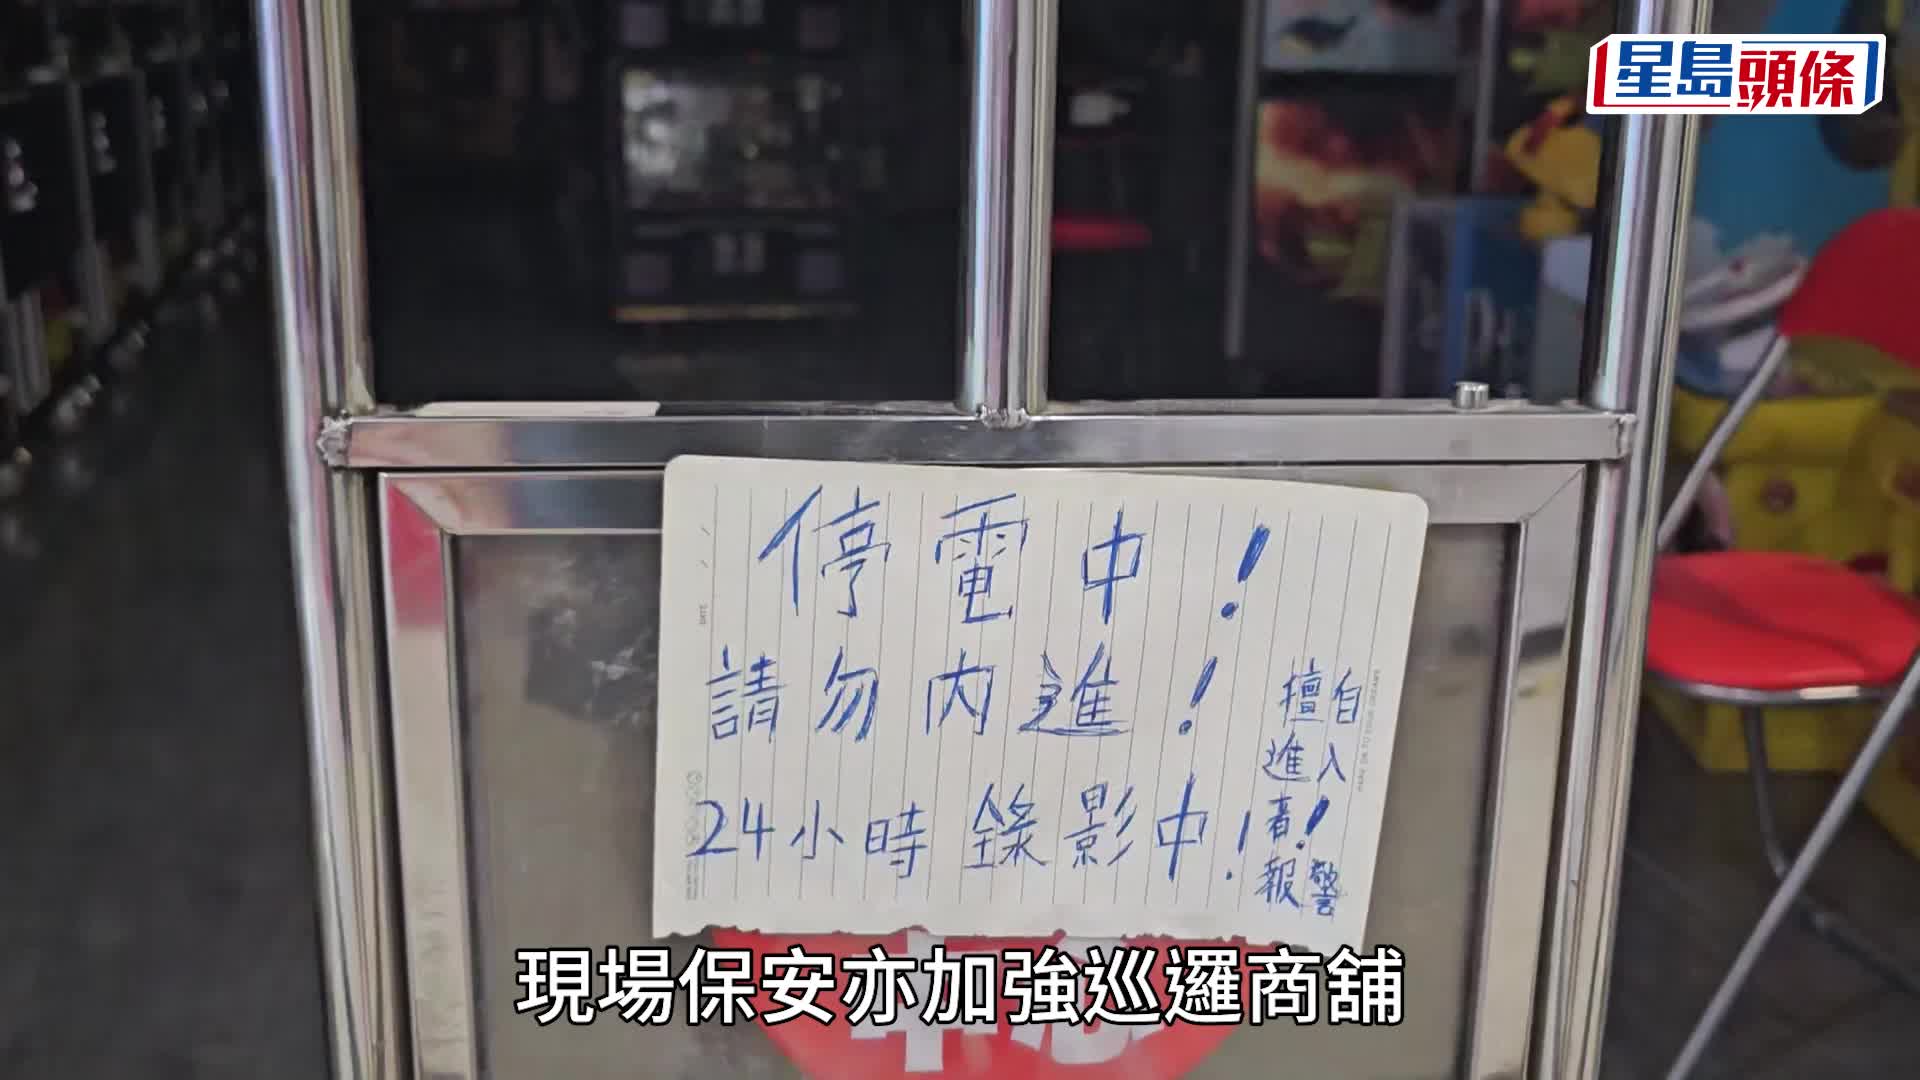 星島頭條
停電中！
請勿內進！
24小時錄影中！
擅自
進入
者！
報警
現場保安亦加強巡邏商舖